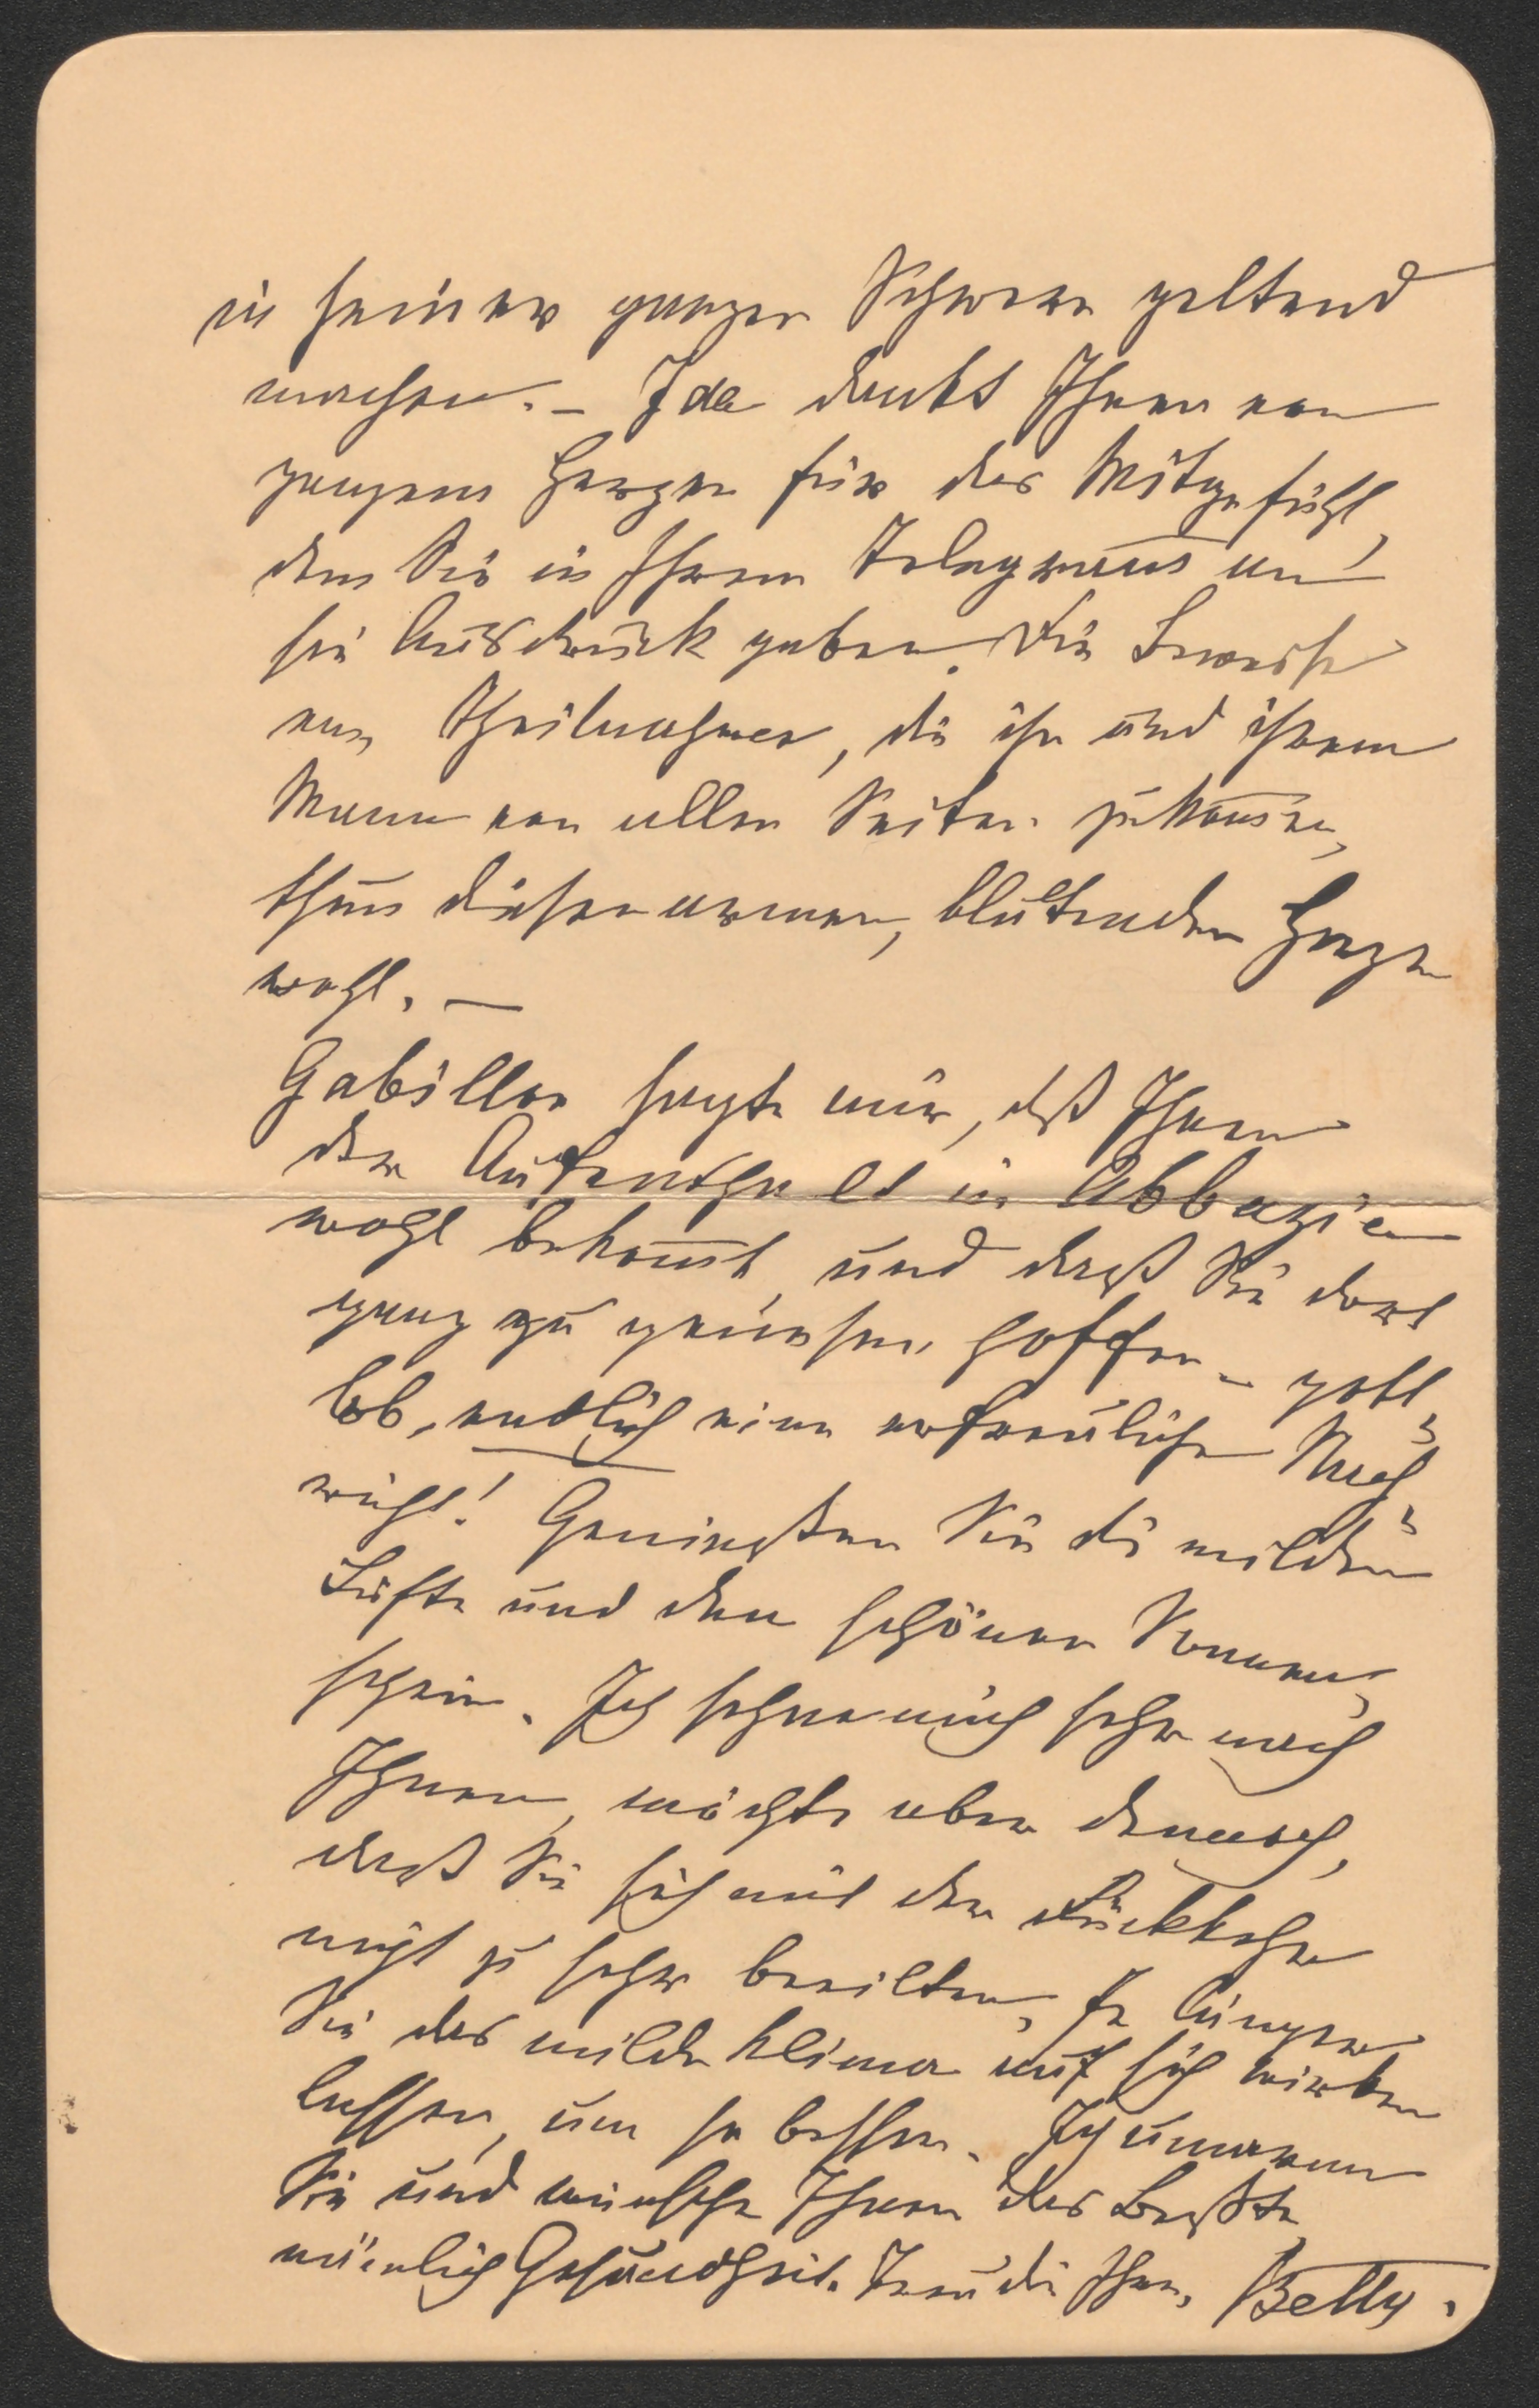 in seiner ganzen Schwere geltend
machen. – Ida dankt Ihnen von
ganzem Herzen für das Mitgefühl,
dem Sie in Ihrem Telegram̅ an
sie Ausdruck gaben. Die Beweise
von Theilnahme, die ihr und ihrem
Mann von allen Seiten zukom̅en,
thun diesen armen, blutenden Herzen
wohl. –
Gabillon sagte mir, daß Ihnen
der Aufenthalt in Abbazia
wohl bekom̅t, und daß Sie dort
ganz zu genesen hoffen – gott¬
lob, endlich eine erfreuliche Nach¬
richt! Genießen Sie die milden
Lüfte und den schönen Sonnen¬
schein. Ich sehne mich sehr nach
Ihnen, möchte aber dennoch,
daß Sie sich mit der Rückkehr
nicht zu sehr beeilten. Je länger
Sie das milde Klima auf sich wirken
lassen, um so besser. Ich umarme
Sie und wünsche Ihnen das Beßte,
nämlich Gesundheit. Treu die Ihre, Betty.